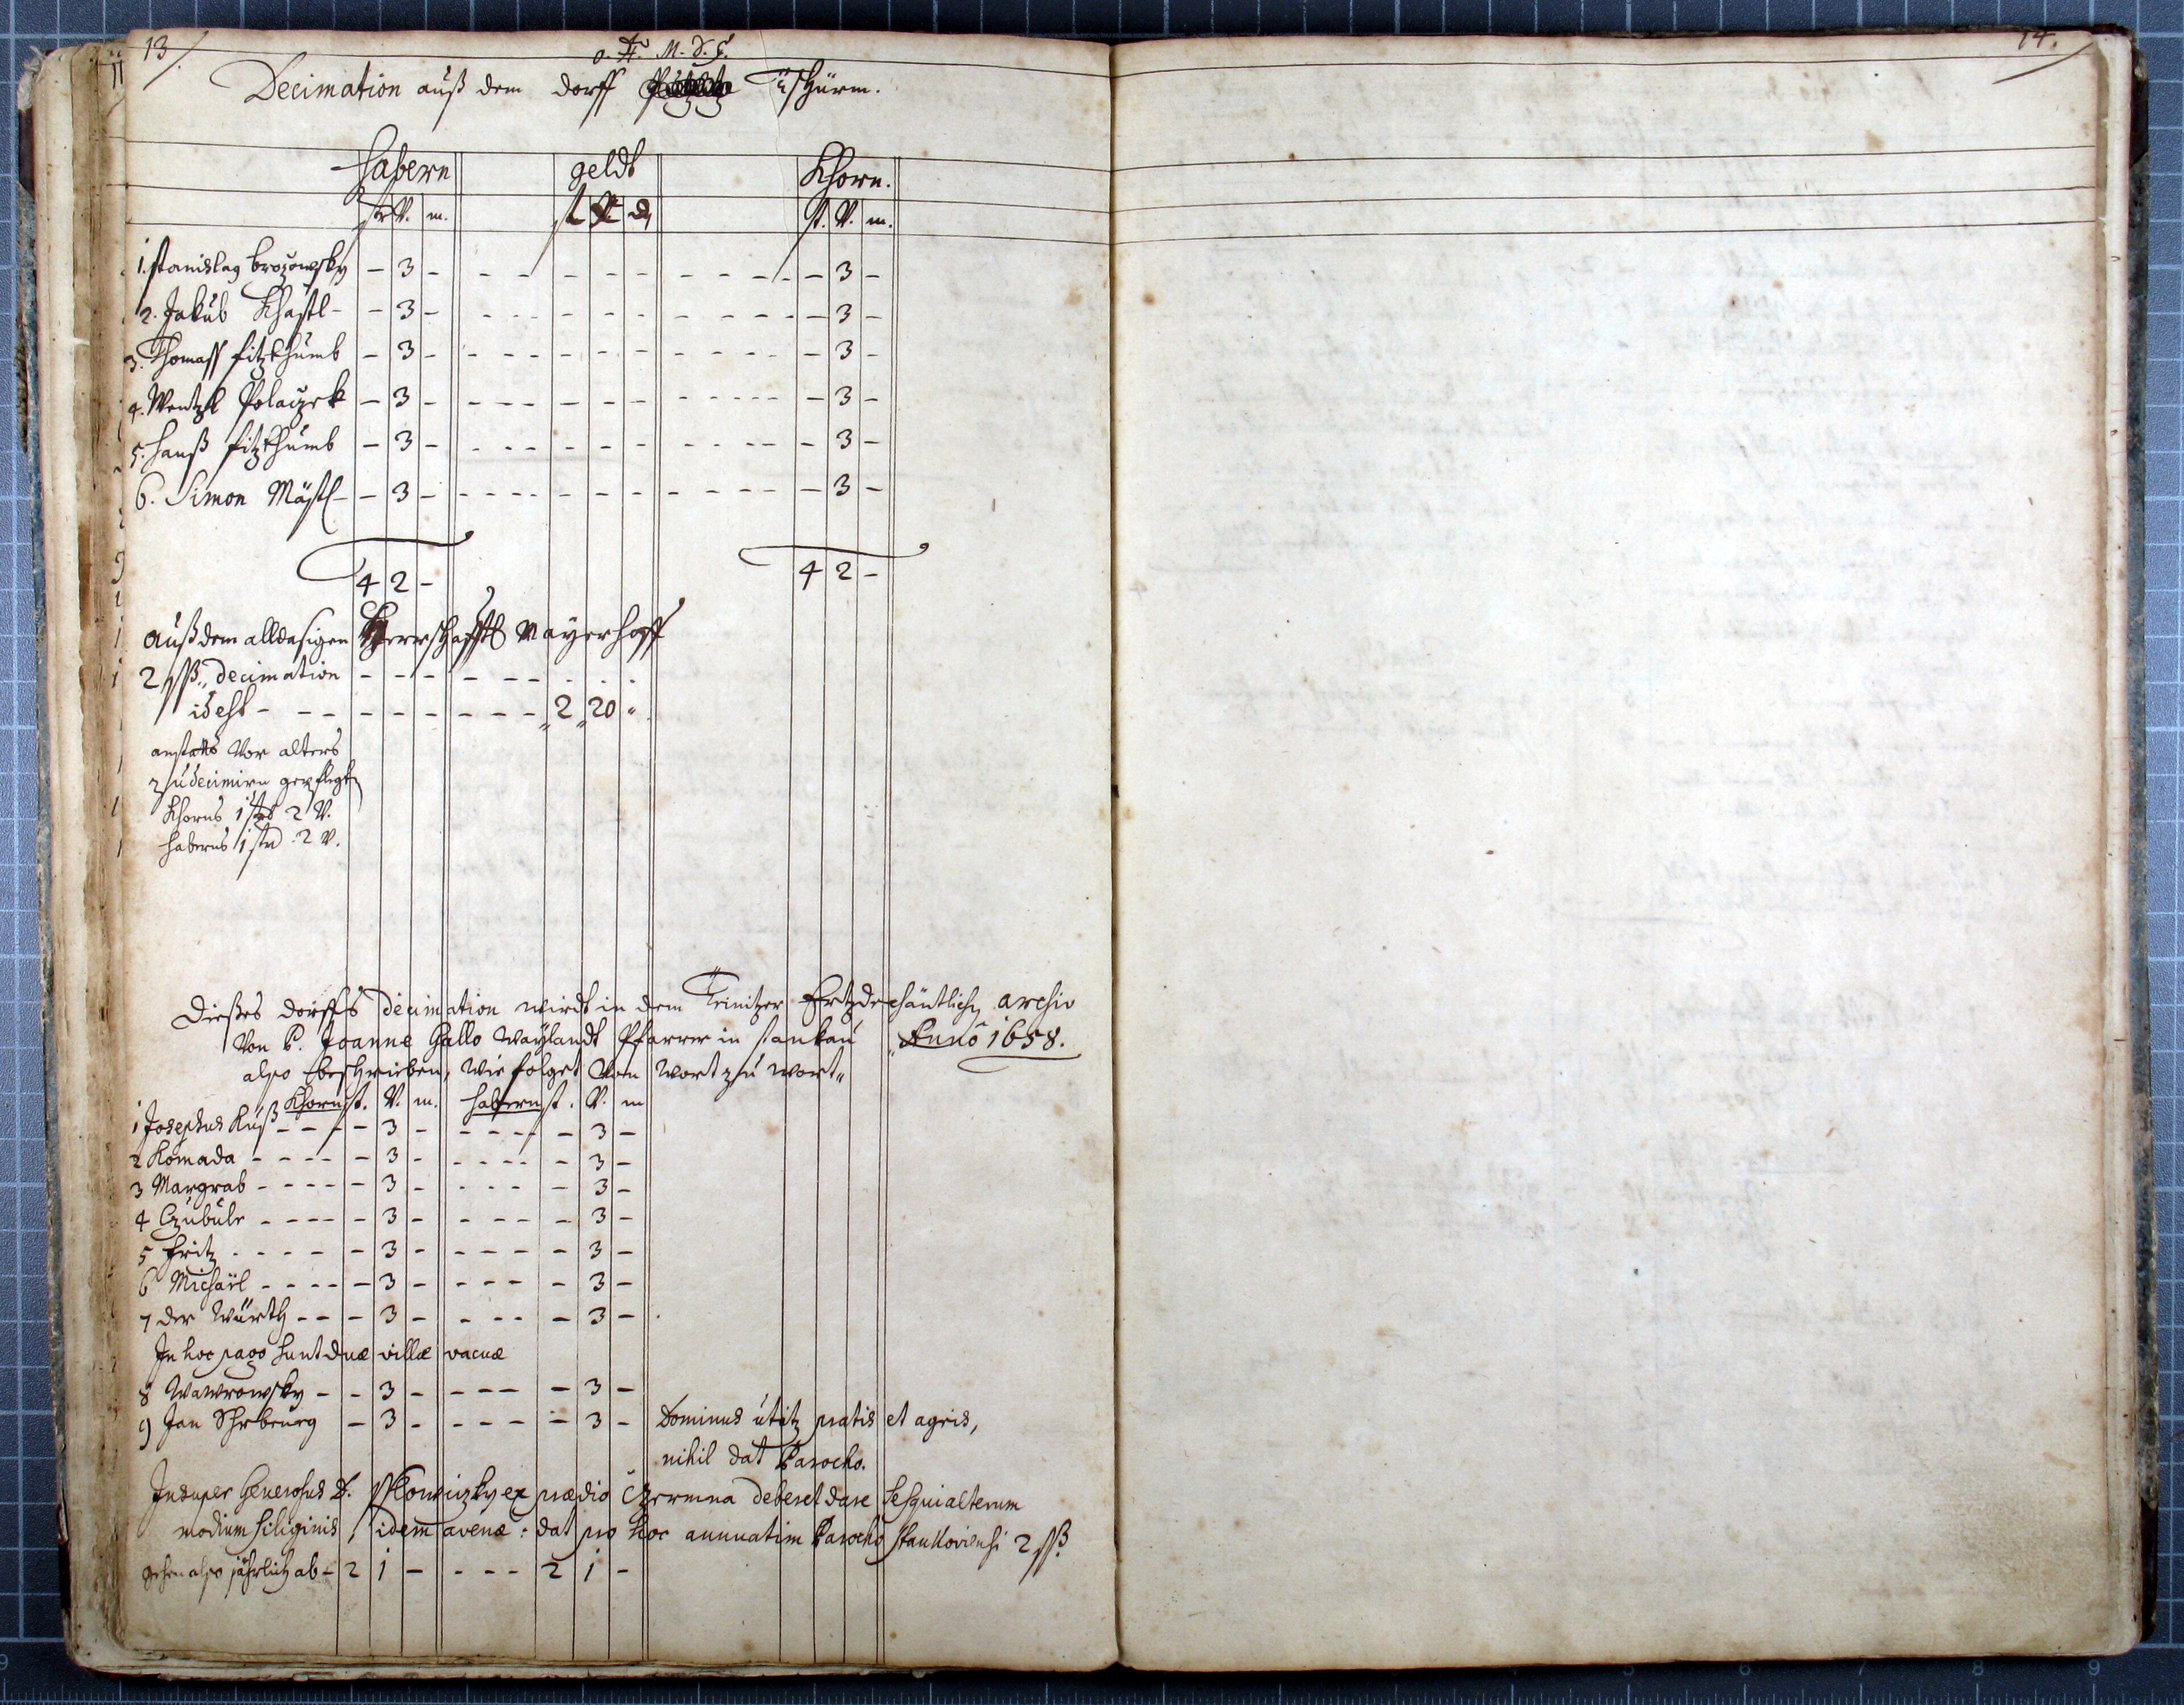 13
14.
o. A. M. D. G.
Decimation auß dem dorff Tschürm.
habern geldt Khorn.
str V. m. st. V. m.
1. Stanislaq Brozowsky – 3 – – 3 –
2. Jakub Khastl – 3 – – 3 –
3. Thomass fitzthumb – 3 – – 3 –
4. Wentzl Polaczek – 3 – – 3 –
5. hanß fitzthumb – 3 – – 3 –
6. Simon Mästl – 3 – – 3 –
4 2 – 4 2 –
Auß dem alldasigen Herrschafftl Mayerhoff
2 sß., decimation
idest – 2 20 "
anstatts Vor alters
zu decimirn gepflegt
Khorns 1 str 2 V.
haberns 1 str 2 V.
Dießes dorffs decimation wirdt in dem Teinitzer Ertzdechäntlichen archiv
Von P. Joanne Gallo Waylandt Pfarrer in Stankau Anno 1658.
also beschrieben, wie folget Von wort zu wort
Khorn st. V. m. habern st. V. m
1 Josephus Kuß – 3 – – 3 –
2 Komada – 3 – – 3 –
3 Margrab – 3 – – 3 –
4 Czubule – 3 – – 3 –
5 fritz – 3 – – 3 –
6 Michaël – 3 – – 3 –
7 der Würth – 3 – – 3 –
In hoc pago sunt duæ villæ vacuæ
8 Wawrowsky – 3 – – 3 –
9 Jan – 3 – – 3 – Dominus utitz pratis et agris,
nihil dat Parocho.
Insuper Generosus D. ex prædio Czermna deberet dare sesquialterum
modium siliginis, idem avenæ: dat pro hoc annuatim Parocho Stankoviensi 2 sß.
gehen also jährlich ab – 2 1 – 2 1 –